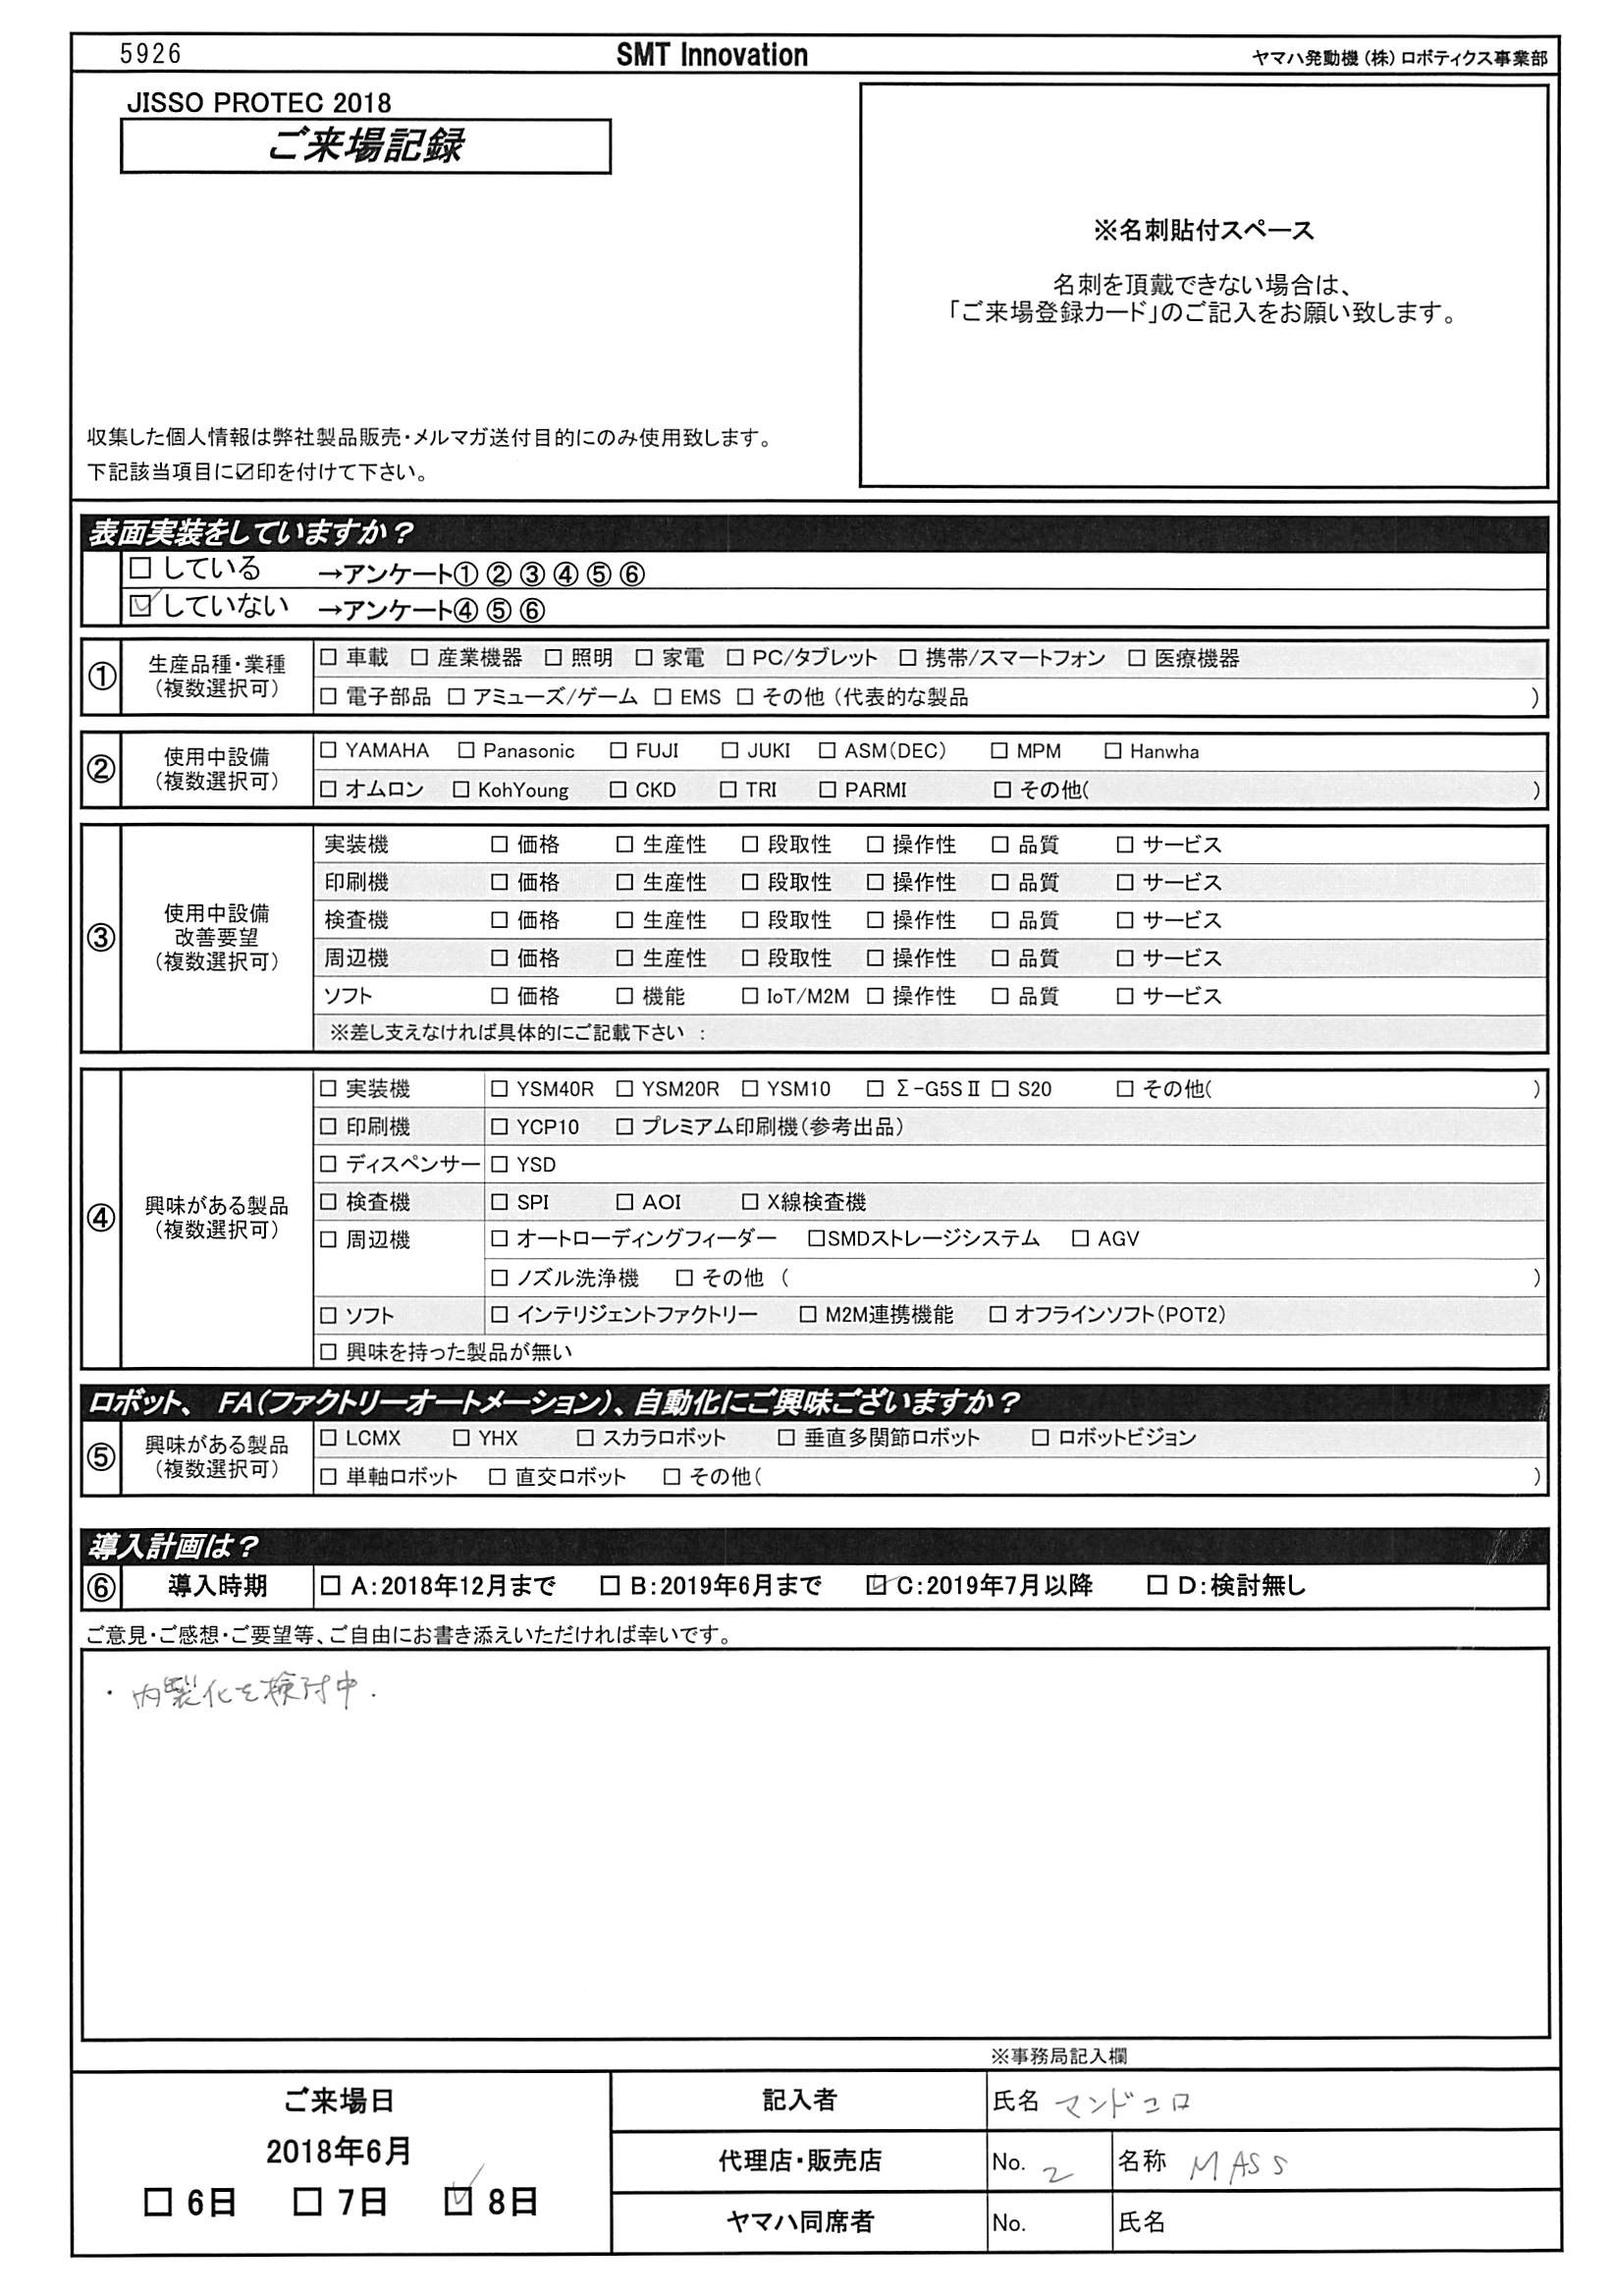 5926
SMT Innovation
ヤマハ発動機（株）ロボティクス事業部
JISSO PROTEC 2018
ご来場記録
※名刺貼付スペース
名刺を頂戴できない場合は、
「ご来場登録カード」のご記入をお願い致します。
収集した個人情報は弊社製品販売・メルマガ送付目的にのみ使用致します。
下記該当項目に☑印を付けて下さい。
表面実装をしていますか？
□ している →アンケート① ② ③ ④ ⑤ ⑥
☑ していない →アンケート④ ⑤ ⑥
① 生産品種・業種（複数選択可）
□ 車載 □ 産業機器 □ 照明 □ 家電 □ PC/タブレット □ 携帯/スマートフォン □ 医療機器
□ 電子部品 □ アミューズ/ゲーム □ EMS □ その他（代表的な製品 ）
② 使用中設備（複数選択可）
□ YAMAHA □ Panasonic □ FUJI □ JUKI □ ASM(DEC) □ MPM □ Hanwha
□ オムロン □ KohYoung □ CKD □ TRI □ PARMI □ その他( )
③ 使用中設備改善要望（複数選択可）
実装機 □ 価格 □ 生産性 □ 段取性 □ 操作性 □ 品質 □ サービス
印刷機 □ 価格 □ 生産性 □ 段取性 □ 操作性 □ 品質 □ サービス
検査機 □ 価格 □ 生産性 □ 段取性 □ 操作性 □ 品質 □ サービス
周辺機 □ 価格 □ 生産性 □ 段取性 □ 操作性 □ 品質 □ サービス
ソフト □ 価格 □ 機能 □ IoT/M2M □ 操作性 □ 品質 □ サービス
※差し支えなければ具体的にご記載下さい ：
④ 興味がある製品（複数選択可）
□ 実装機 □ YSM40R □ YSM20R □ YSM10 □ Σ-G5SⅡ □ S20 □ その他( )
□ 印刷機 □ YCP10 □ プレミアム印刷機（参考出品）
□ ディスペンサー □ YSD
□ 検査機 □ SPI □ AOI □ X線検査機
□ 周辺機 □ オートローディングフィーダー □SMDストレージシステム □ AGV
□ ノズル洗浄機 □ その他（ ）
□ ソフト □ インテリジェントファクトリー □ M2M連携機能 □ オフラインソフト(POT2)
□ 興味を持った製品が無い
ロボット、 FA（ファクトリーオートメーション）、自動化にご興味ございますか？
⑤ 興味がある製品（複数選択可）
□ LCMX □ YHX □ スカラロボット □ 垂直多関節ロボット □ ロボットビジョン
□ 単軸ロボット □ 直交ロボット □ その他( )
導入計画は？
⑥ 導入時期 □ A:2018年12月まで □ B:2019年6月まで ☑ C:2019年7月以降 □ D:検討無し
ご意見・ご感想・ご要望等、ご自由にお書き添えいただければ幸いです。
・内製化を検討中.
※事務局記入欄
ご来場日
2018年6月
□ 6日 □ 7日 ☑ 8日
記入者 氏名 マンドコロ
代理店・販売店 No. 2 名称 MASS
ヤマハ同席者 No. 氏名